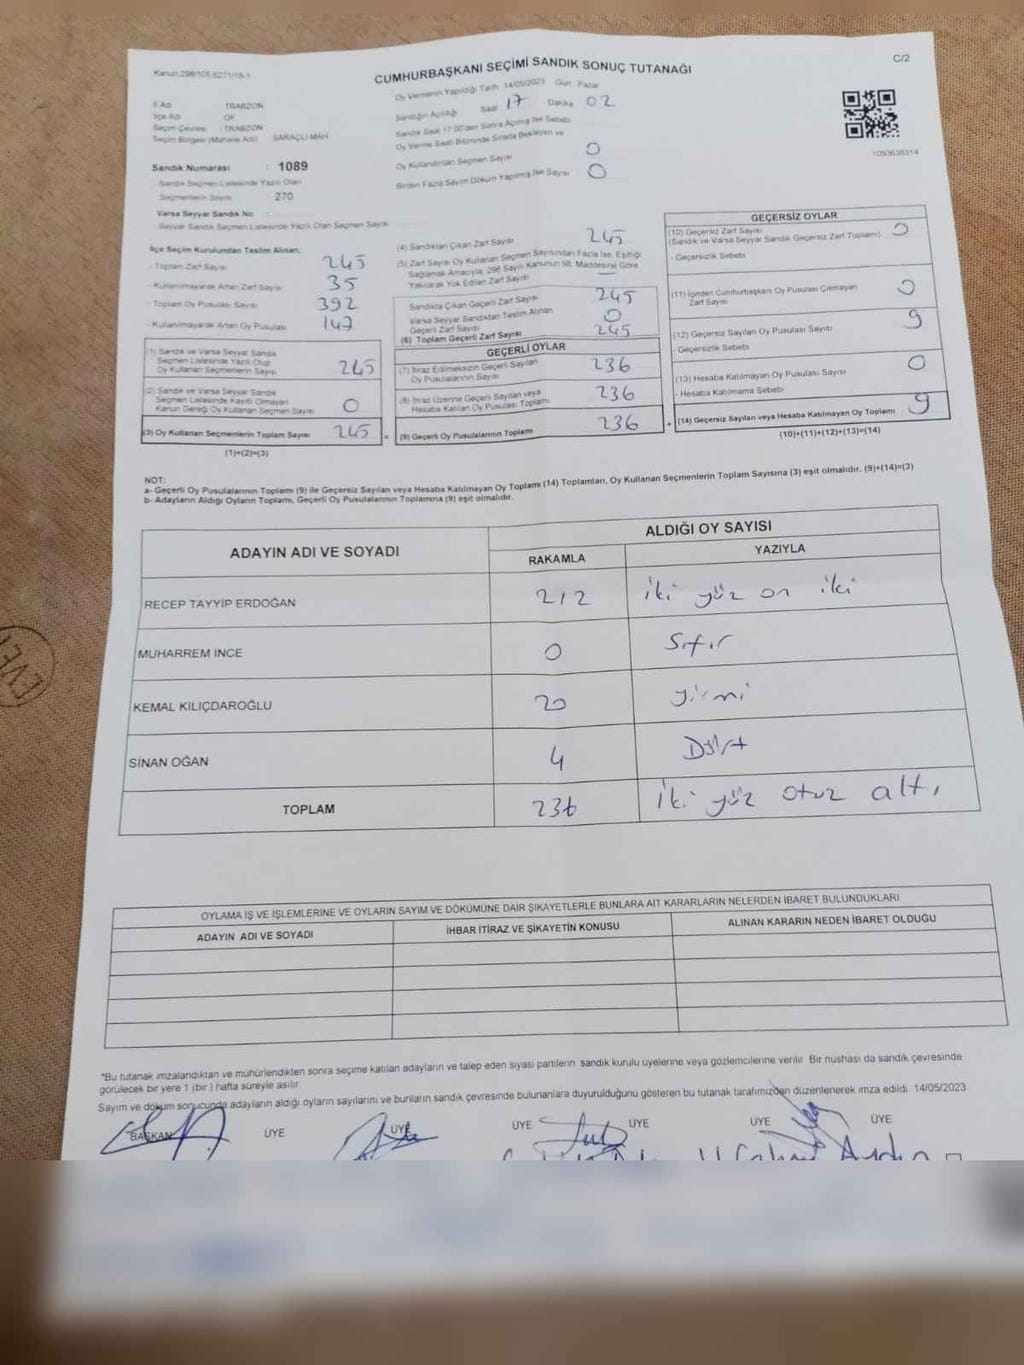 Kanun 298/105 6271/19-1
C/2
CUMHURBAŞKANI SEÇİMİ SANDIK SONUÇ TUTANAĞI
Oy Vermenin Yapıldığı Tarih 14/05/2023 Gün Pazar
Sandığın Açıldığı Saat 17 Dakika 02
Sandık Saat 17:00'den Sonra Açılmış İse Sebebi
Oy Verme Saati Bitiminde Sırada Bekleyen ve
Oy Kullandırılan Seçmen Sayısı 0
Birden Fazla Sayım Döküm Yapılmış İse Sayısı 0
1093638314
İl Adı TRABZON
İlçe Adı OF
Seçim Çevresi : TRABZON
Seçim Bölgesi (Mahalle Adı) SARAÇLI MAH
Sandık Numarası : 1089
Sandık Seçmen Listesinde Yazılı Olan
Seçmenlerin Sayısı : 270
Varsa Seyyar Sandık No
Seyyar Sandık Seçmen Listesinde Yazılı Olan Seçmen Sayısı
İlçe Seçim Kurulundan Teslim Alınan;
- Toplam Zarf Sayısı 245
- Kullanılmayarak Artan Zarf Sayısı 35
- Toplam Oy Pusulası Sayısı 392
- Kullanılmayarak Artan Oy Pusulası 147
(1) Sandık ve Varsa Seyyar Sandık
Seçmen Listesinde Yazılı Olup
Oy Kullanan Seçmenlerin Sayısı 245
(2) Sandık ve Varsa Seyyar Sandık
Seçmen Listesinde Kayıtlı Olmayan
Kanun Gereği Oy Kullanan Seçmen Sayısı 0
(3) Oy Kullanan Seçmenlerin Toplam Sayısı 245 =
(1)+(2)=(3)
(4) Sandıktan Çıkan Zarf Sayısı 245
(5) Zarf Sayısı Oy Kullanan Seçmen Sayısından Fazla İse, Eşitliği
Sağlamak Amacıyla, 298 Sayılı Kanunun 98. Maddesine Göre
Yakılarak Yok Edilen Zarf Sayısı —
Sandıkta Çıkan Geçerli Zarf Sayısı 245
Varsa Seyyar Sandıktan Teslim Alınan
Geçerli Zarf Sayısı 0
(6) Toplam Geçerli Zarf Sayısı 245
GEÇERLİ OYLAR
(7) İtiraz Edilmeksizin Geçerli Sayılan
Oy Pusulalarının Sayısı 236
(8) İtiraz Üzerine Geçerli Sayılan veya
Hesaba Katılan Oy Pusulası Toplamı 236
(9) Geçerli Oy Pusulalarının Toplamı 236 +
GEÇERSİZ OYLAR
(10) Geçersiz Zarf Sayısı
(Sandık ve Varsa Seyyar Sandık Geçersiz Zarf Toplamı) 0
- Geçersizlik Sebebi
(11) İçinden Cumhurbaşkanı Oy Pusulası Çıkmayan
Zarf Sayısı 0
(12) Geçersiz Sayılan Oy Pusulası Sayısı 9
- Geçersizlik Sebebi
(13) Hesaba Katılmayan Oy Pusulası Sayısı 0
- Hesaba Katılmama Sebebi
(14) Geçersiz Sayılan veya Hesaba Katılmayan Oy Toplamı 9
(10)+(11)+(12)+(13)=(14)
NOT:
a- Geçerli Oy Pusulalarının Toplamı (9) ile Geçersiz Sayılan veya Hesaba Katılmayan Oy Toplamı (14) Toplamları, Oy Kullanan Seçmenlerin Toplam Sayısına (3) eşit olmalıdır. (9)+(14)=(3)
b- Adayların Aldığı Oyların Toplamı, Geçerli Oy Pusulalarının Toplamına (9) eşit olmalıdır.
ADAYIN ADI VE SOYADI ALDIĞI OY SAYISI
RAKAMLA YAZIYLA
RECEP TAYYİP ERDOĞAN 212 iki yüz on iki
MUHARREM İNCE 0 Sıfır
KEMAL KILIÇDAROĞLU 20 yirmi
SİNAN OĞAN 4 Dört
TOPLAM 236 iki yüz otuz altı
OYLAMA İŞ VE İŞLEMLERİNE VE OYLARIN SAYIM VE DÖKÜMÜNE DAİR ŞİKAYETLERLE BUNLARA AİT KARARLARIN NELERDEN İBARET BULUNDUKLARI
ADAYIN ADI VE SOYADI İHBAR İTİRAZ VE ŞİKAYETİN KONUSU ALINAN KARARIN NEDEN İBARET OLDUĞU
*Bu tutanak imzalandıktan ve mühürlendikten sonra seçime katılan adayların ve talep eden siyasi partilerin sandık kurulu üyelerine veya gözlemcilerine verilir. Bir nüshası da sandık çevresinde
görülecek bir yere 1 (bir) hafta süreyle asılır.
Sayım ve döküm sonucunda adayların aldığı oyların sayılarını ve bunların sandık çevresinde bulunanlara duyurulduğunu gösteren bu tutanak tarafımızdan düzenlenerek imza edildi. 14/05/2023
BAŞKAN ÜYE ÜYE ÜYE ÜYE ÜYE ÜYE